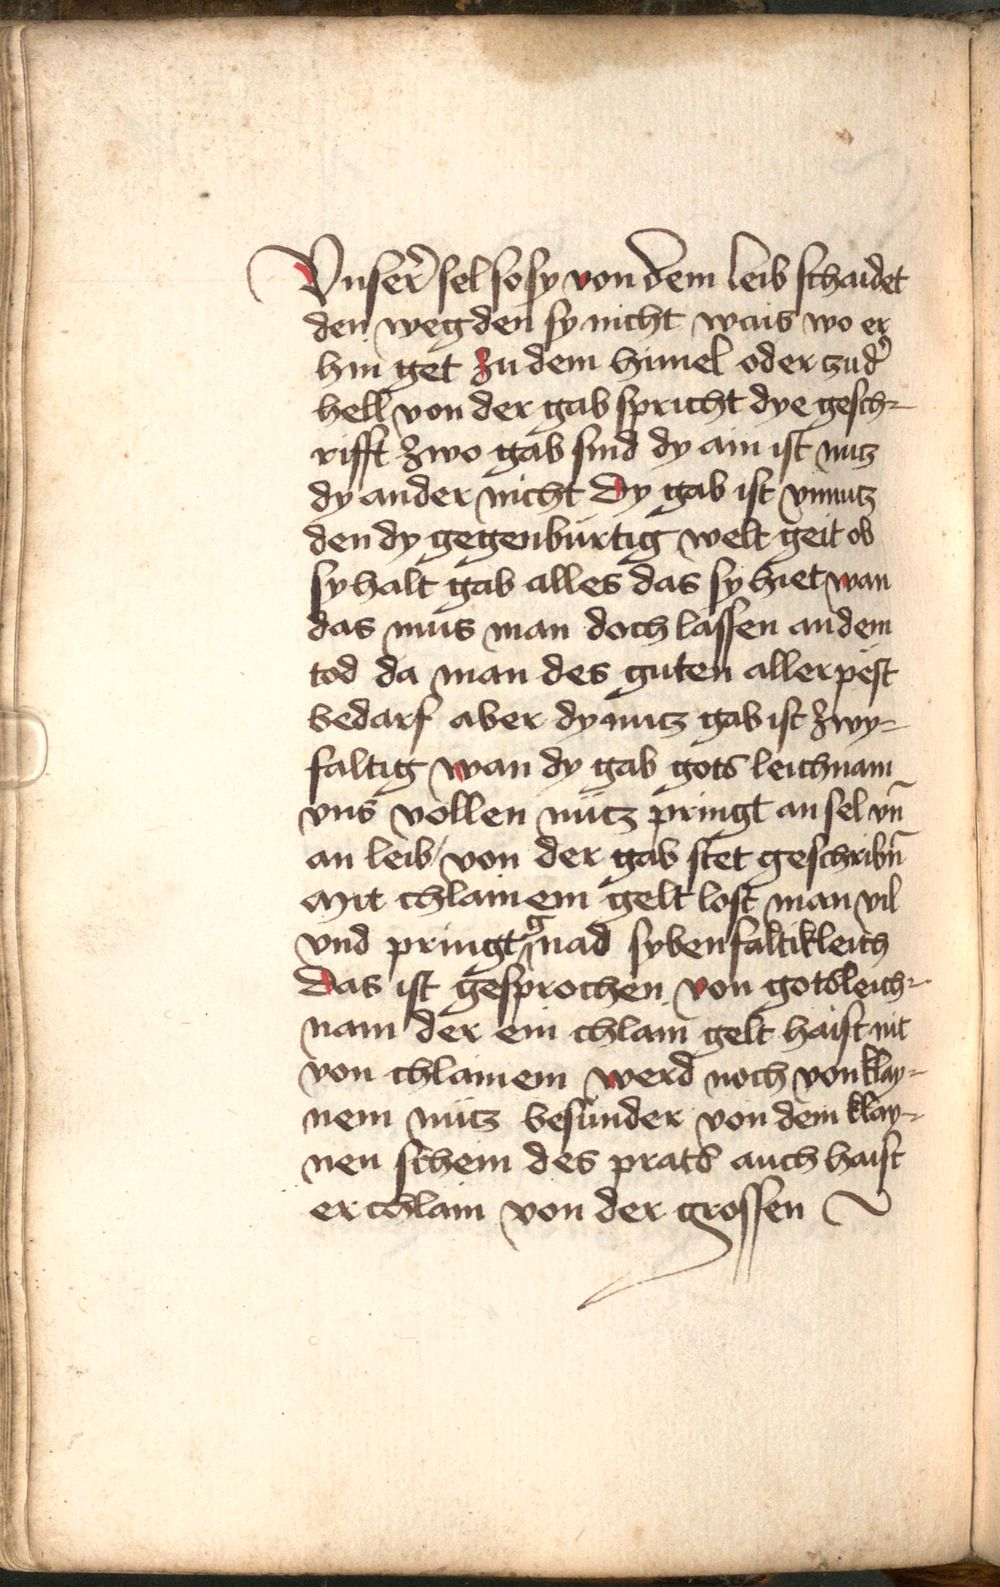 Vnser̄ sel so sy von dem leib schaidet
den weg den sy nicht wais wo er
hin get zu dem himel oder zud̄
hell von der gab spricht dye gesch-
rifft zwo gab sind dy ain ist nutz
dy ander nicht Dy gab ist vnnutz
den dy gegenbürtig welt geit ob
sy halt gab alles das sy hiet wan
das mus man doch lassen an dem
tod da man des guten aller pest
bedarf aber dy nutz gab ist zwy-
faltig wan dy gab gots leichnam
vns vollen nütz pringt an sel vn̄
an leib / von der gab stet geschribn̄
Mit chlainem gelt lost man vil
vnd pringt gnad sybenfaltikleich
Das ist gesprochen von gotsleich-
nam der ein chlain gelt haist nit
von chlainem werd noch von klay-
nem nütz besunder von dem klay-
nen schein des prats auch haist
er chlain von der grossen